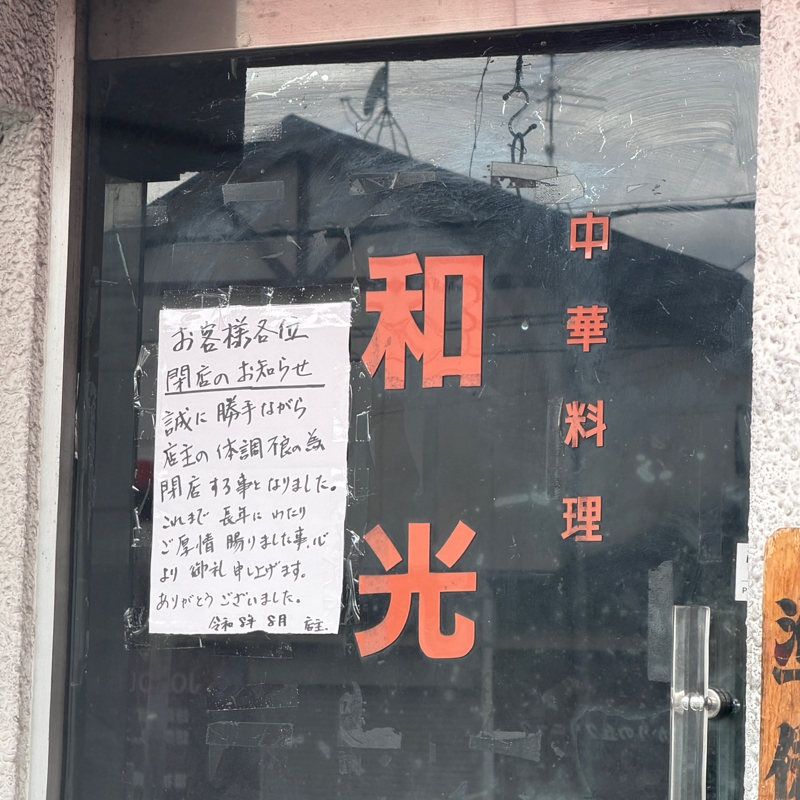 中華料理
和光
お客様各位
閉店のお知らせ
誠に勝手ながら
店主の体調不良の為
閉店する事となりました。
これまで長年にわたり
ご厚情賜りました事、心
より御礼申し上げます。
ありがとうございました。
令和8年8月 店主.